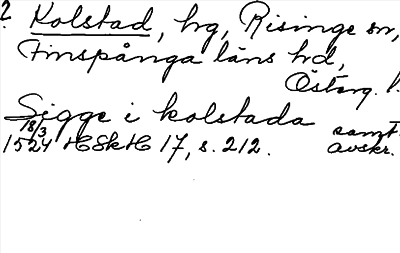 ? Kolstad, hg, Risinge sn,
Finspånga läns hd,
Österg. l.
Sigge i kolstada
18/3 samt.
1524 HSkH 17, s. 212. avskr.